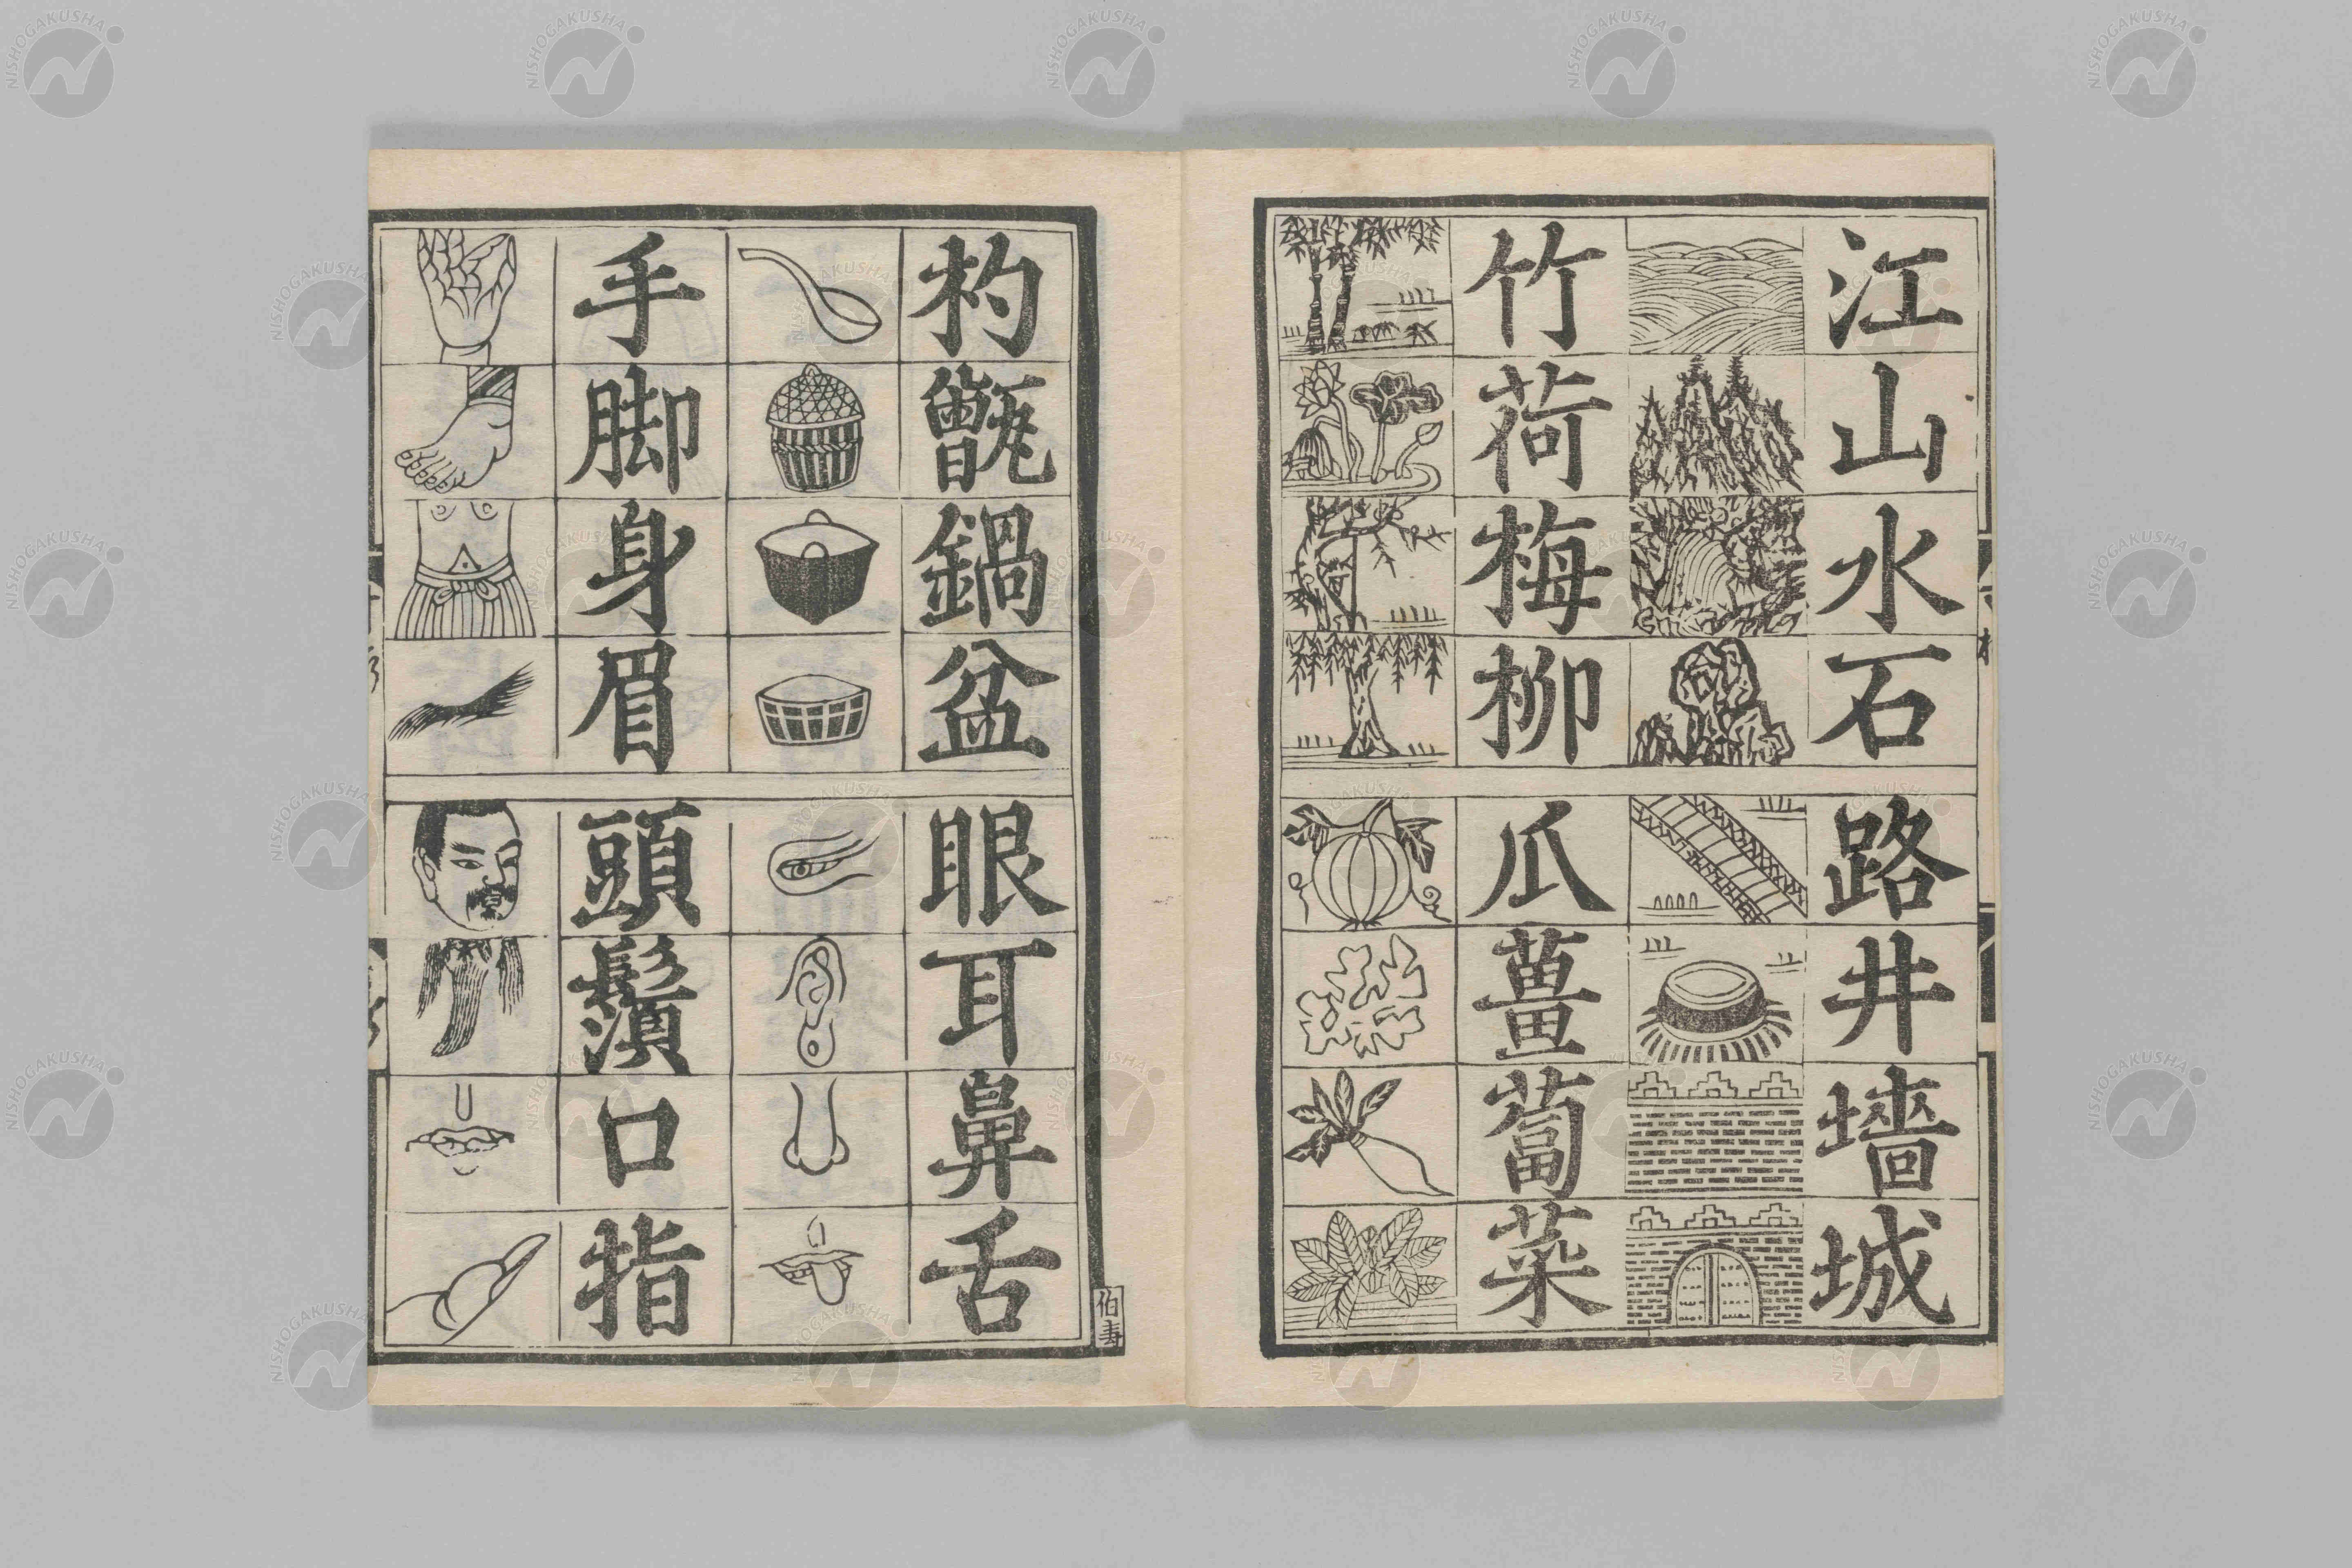 江山水石
路井墻城
竹荷梅柳
瓜薑蔔菜
杓甑鍋盆
眼耳鼻舌
手脚身眉
頭鬚口指
伯壽
NISHOGAKUSHA